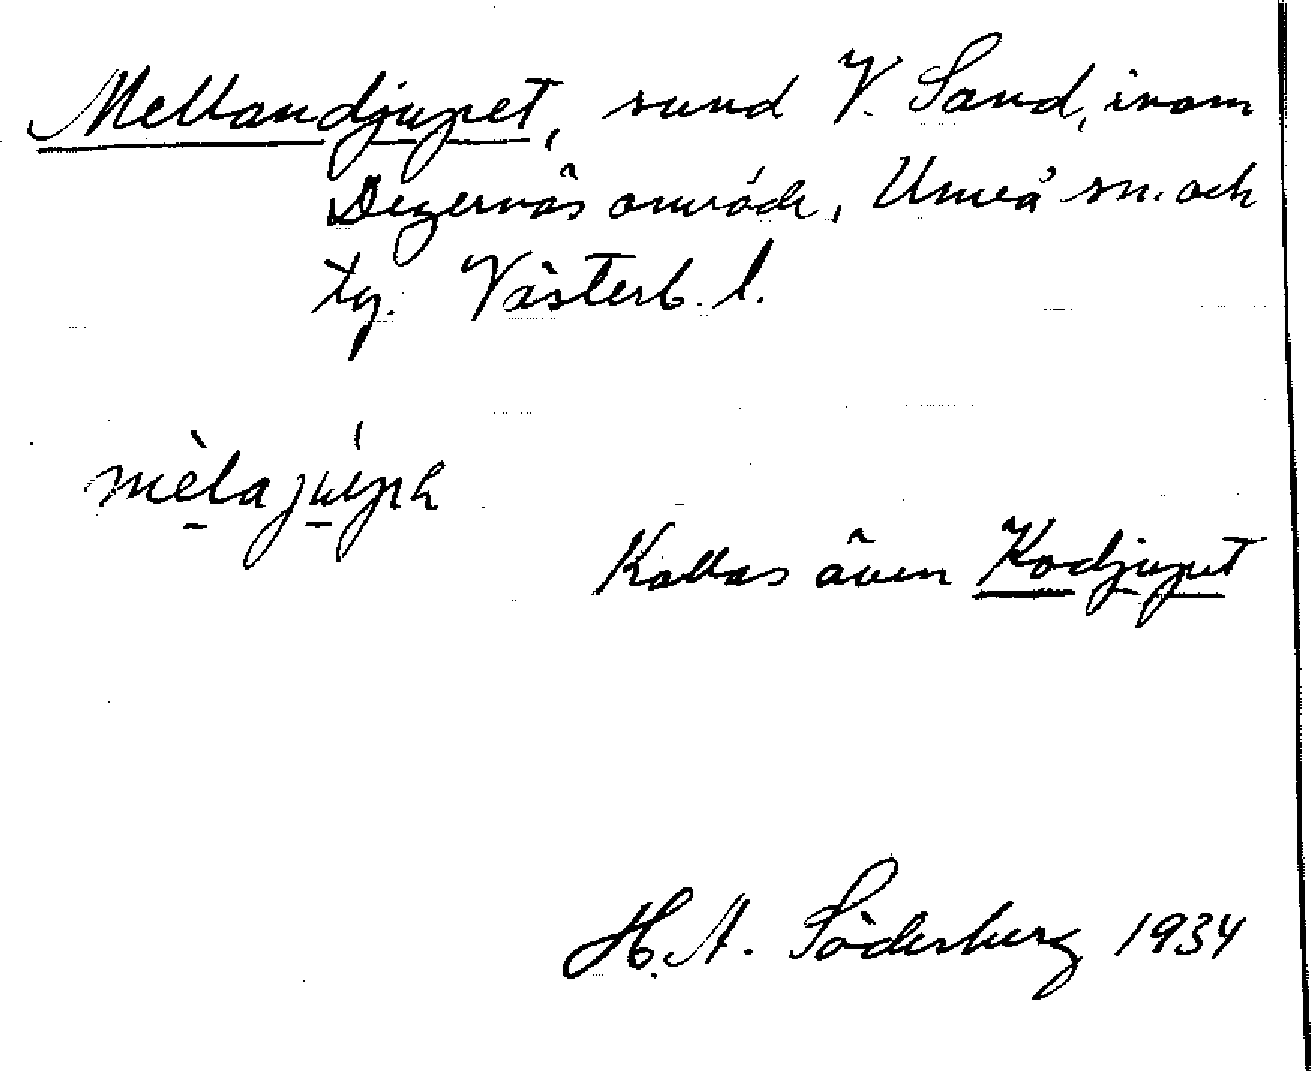 Mellandjupet, sund V. Sand, inom
Degernäs område, Umeå sn. och
tg. Västerb. l.
Kallas även Kodjupet
H. A. Söderberg 1934